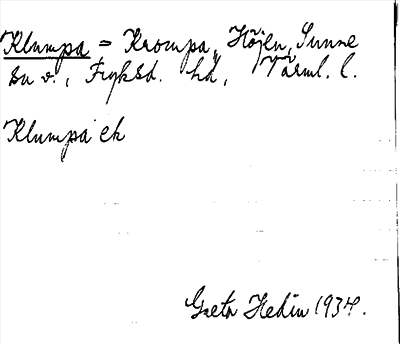 Klumpa = Krompa, Höjen, Sunne
sn o., Fryksd. hd, Värml. l.
Klumpa ek
Greta Hedin 1934.